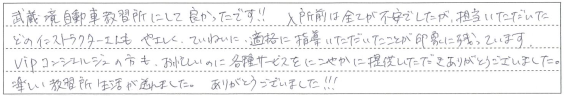 武蔵境自動車教習所にして良かったです!! 入所前は全てが不安でしたが、担当いただいた
どのインストラクターさんも やさしく、ていねいに、適格に指導いただいたことが印象に残っています。
vipコンシェルジュの方も、お忙しいのに各種サービスをにこやかに提供いただきありがとうございました。
楽しい教習所生活が送れました。 ありがとうございました!!!